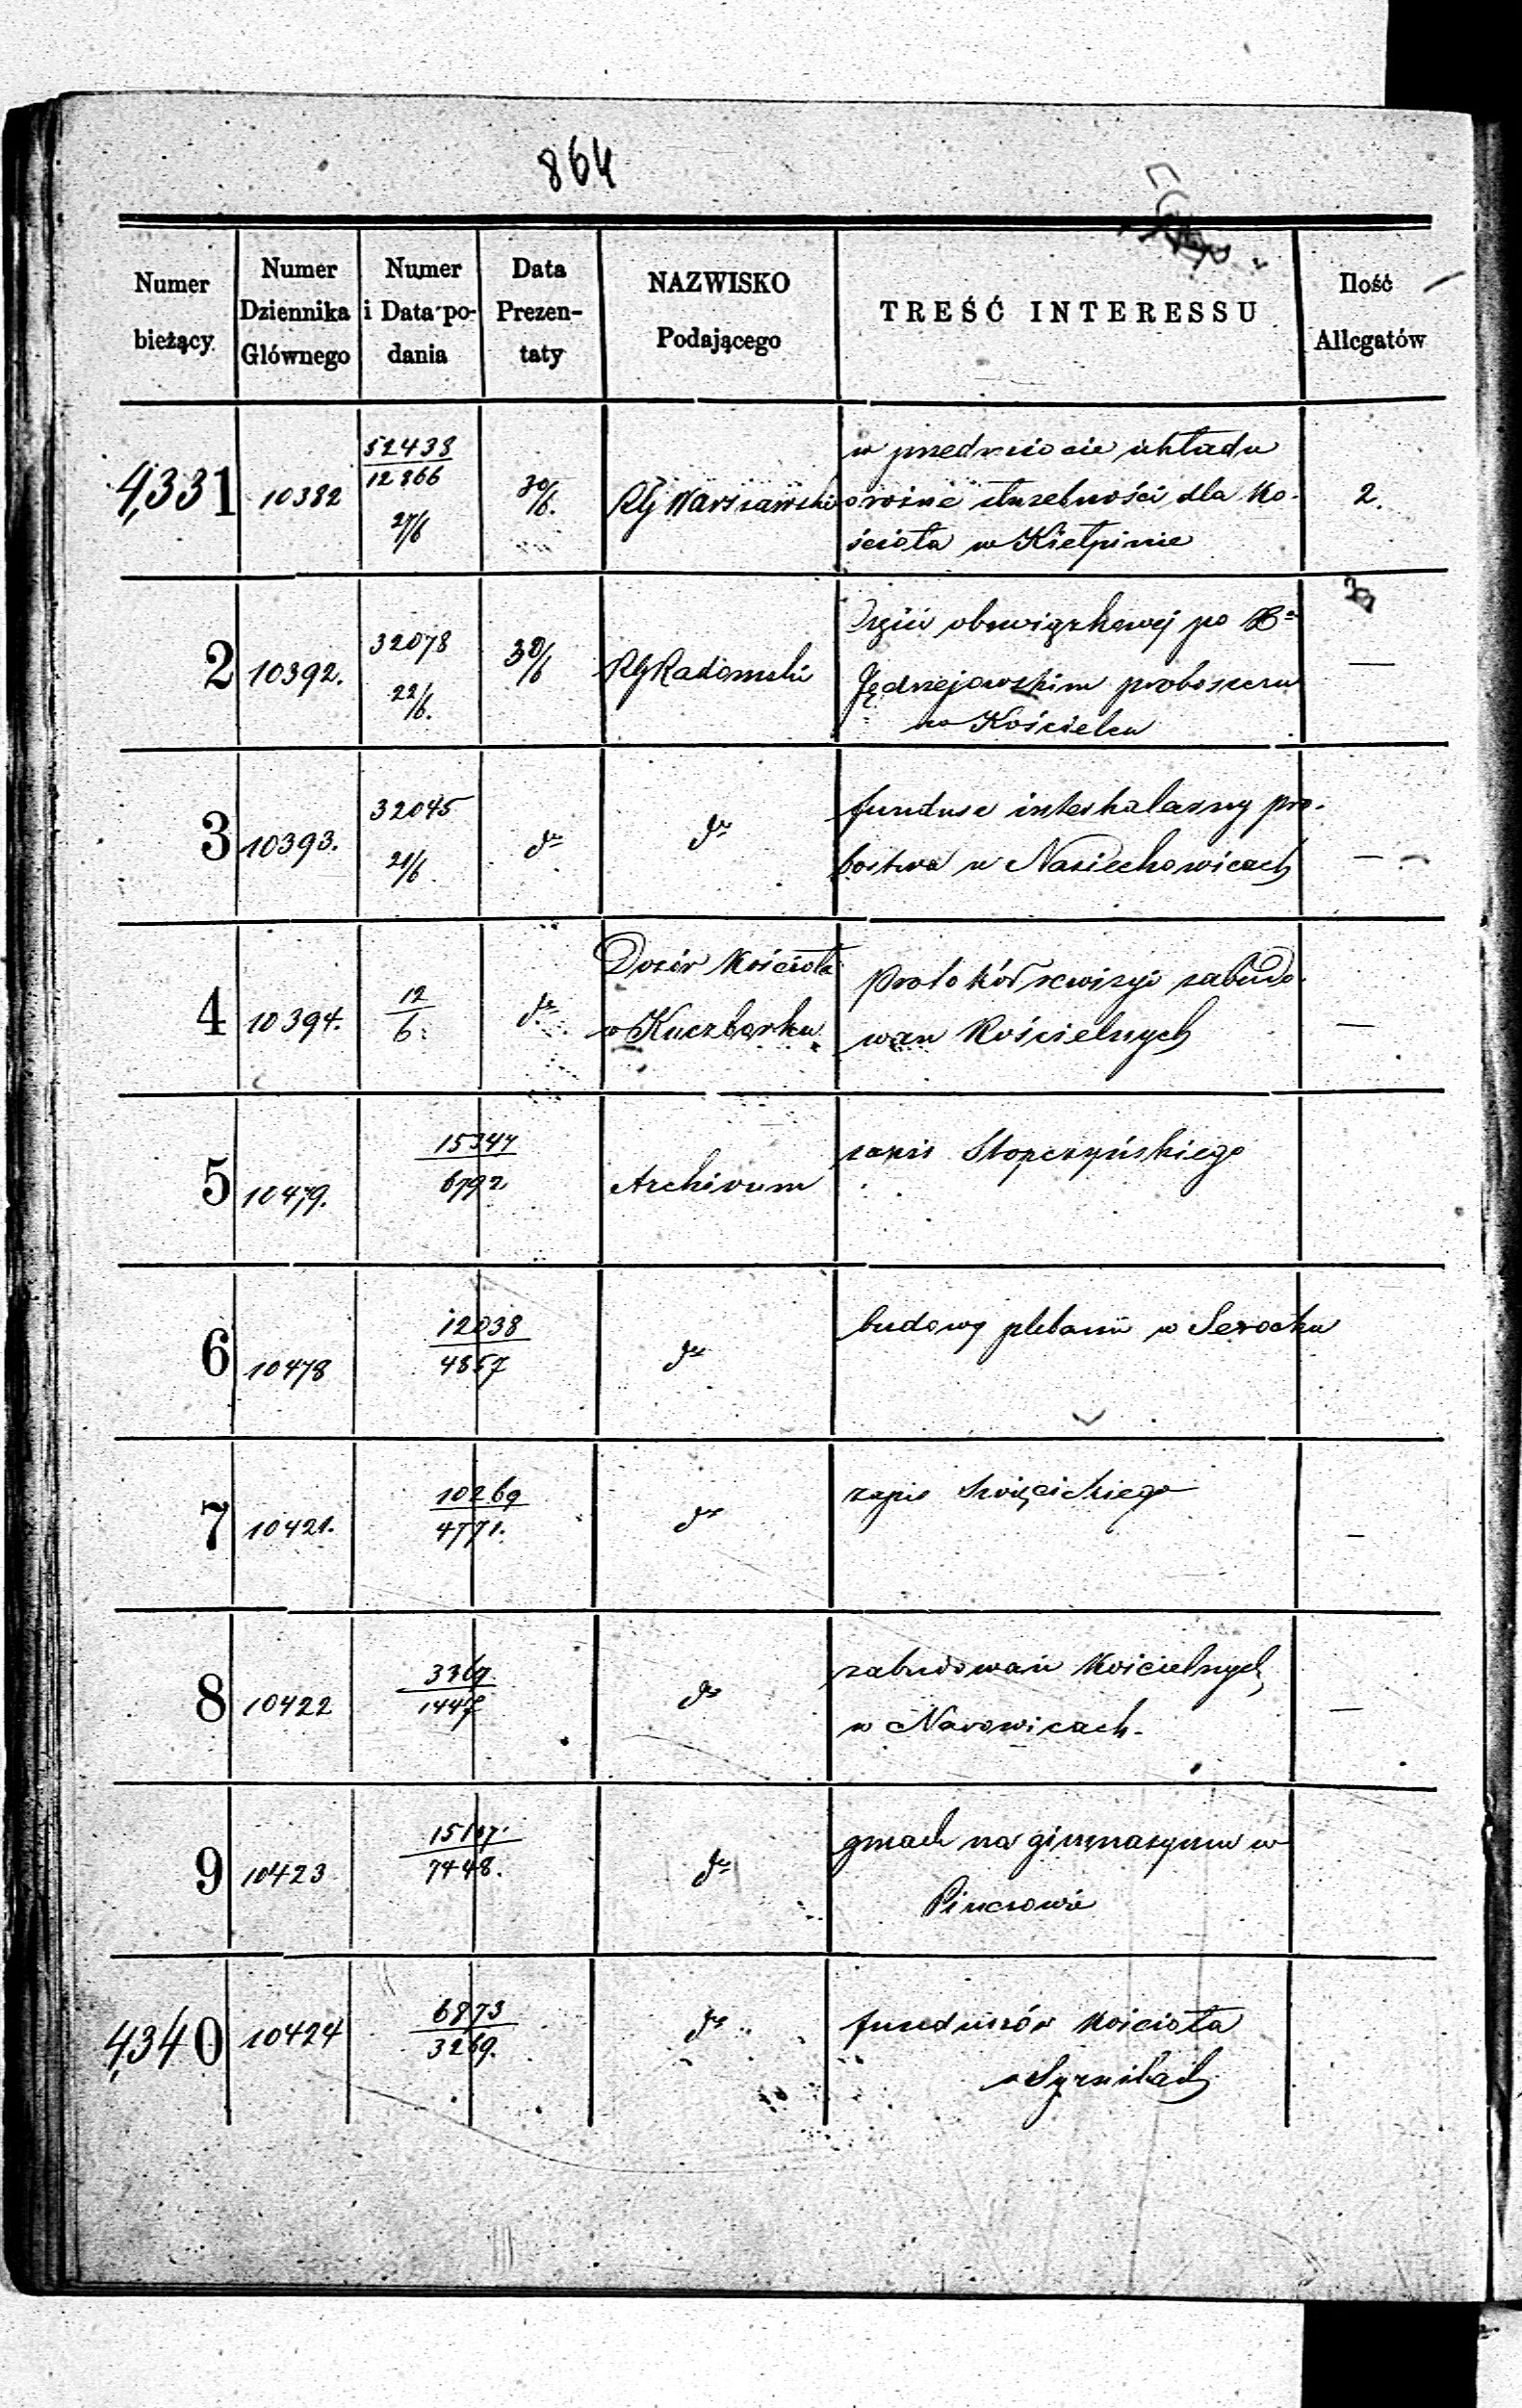 864
Numer bieżący | Numer Dziennika Głównego | Numer i Data podania | Data Prezentaty | NAZWISKO Podającego | TREŚĆ INTERESSU | Ilość Allegatów
4,331 | 10382 | 52438/12866 27/6 | 30/6. | RG Warszawski | w przedmiocie układu
o różne służebności dla Ko-
ścioła w Kiełpinie | 2.
2 | 10392. | 32078 22/6. | 30/6 | RG Radomski | obowiązkowej po X
Jędrzejowskim proboszczu
w Kościelcu | —
3 | 10393. | 32045 21/6 | do | do | fundusz interkalarny pro-
bostwa w Nasiechowicach | —
4 | 10394. | 12/6. | do | Dozór Kościoła
w Kuczborku | Protokół rewizyi zabudo-
wań Kościelnych | —
5 | 10479. | 15344/6792 | Archivum | zapis Stopczyńskiego
6 | 10478 | 12038/4857 | do | budowy plebanii w Serocku
7 | 10421. | 10269/4771. | do | zapis Święcickiego | —
8 | 10422 | 3369/1447 | do | zabudowań Kościelnych
w Narowicach. | —
9 | 10423 | 15107/7448. | do | gmach na gimnazyum w
Pinczowie
4,340 | 10424 | 6873/3269. | do | funduszów Kościoła
w Syrnikach